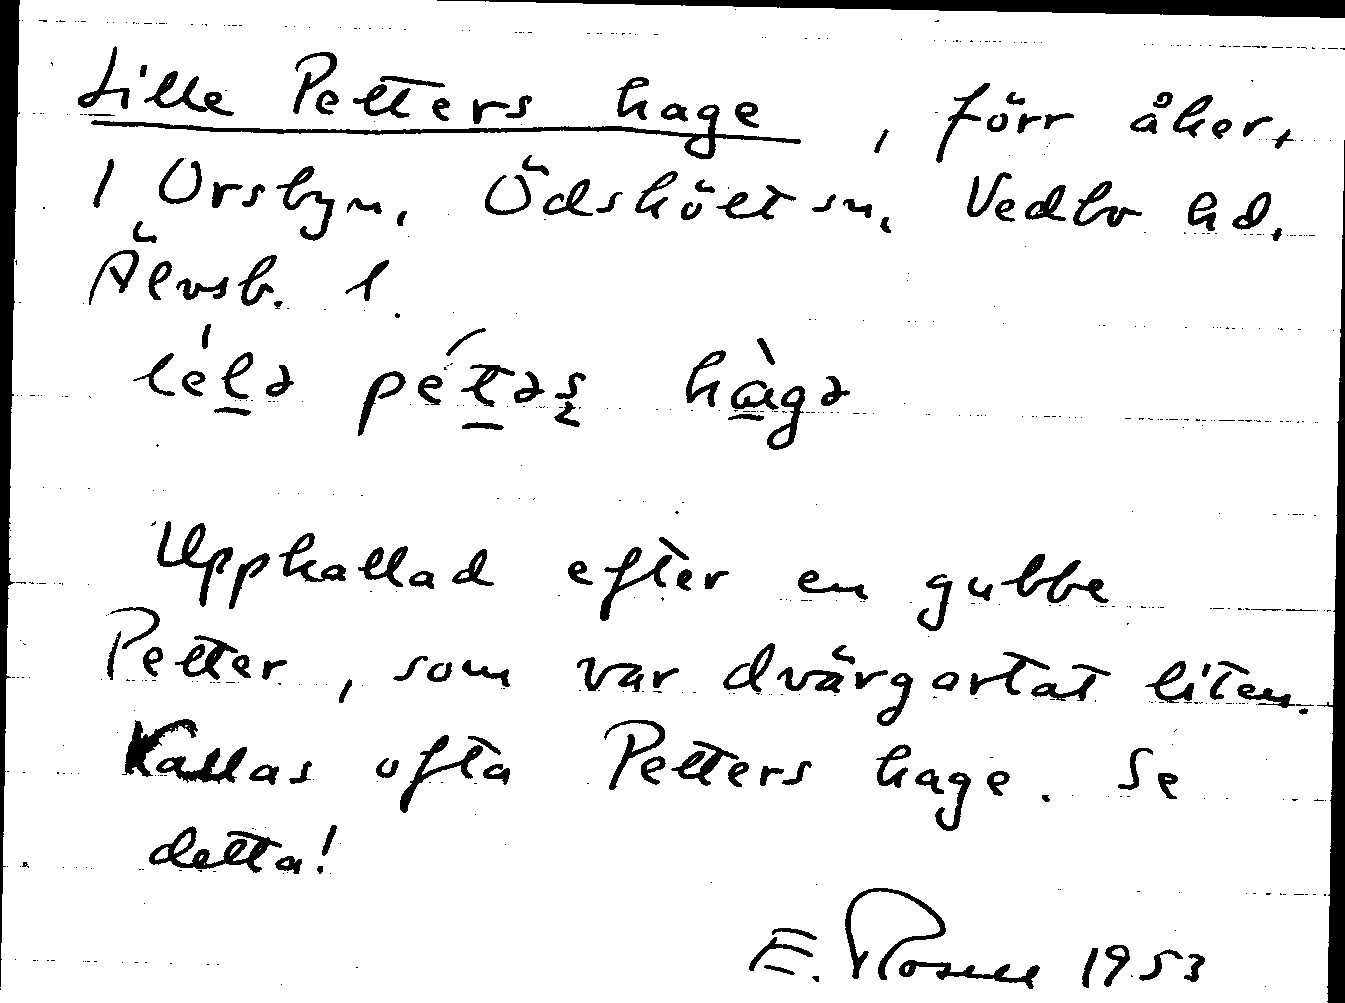 Lille Petters hage, förr åker,
1 Orsbyn, Ödsköelt sn, Vedbo hd,
Älvsb. l.
léla pétas hàga
Uppkallad efter en gubbe
Petter, som var dvärgartat liten.
Kallas ofta Petters hage. Se
detta!
E. Rosell 1953